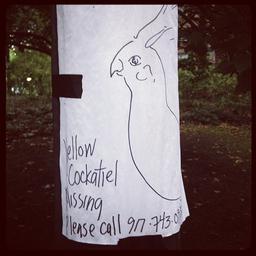 Yellow
Cockatiel
Missing
Please call